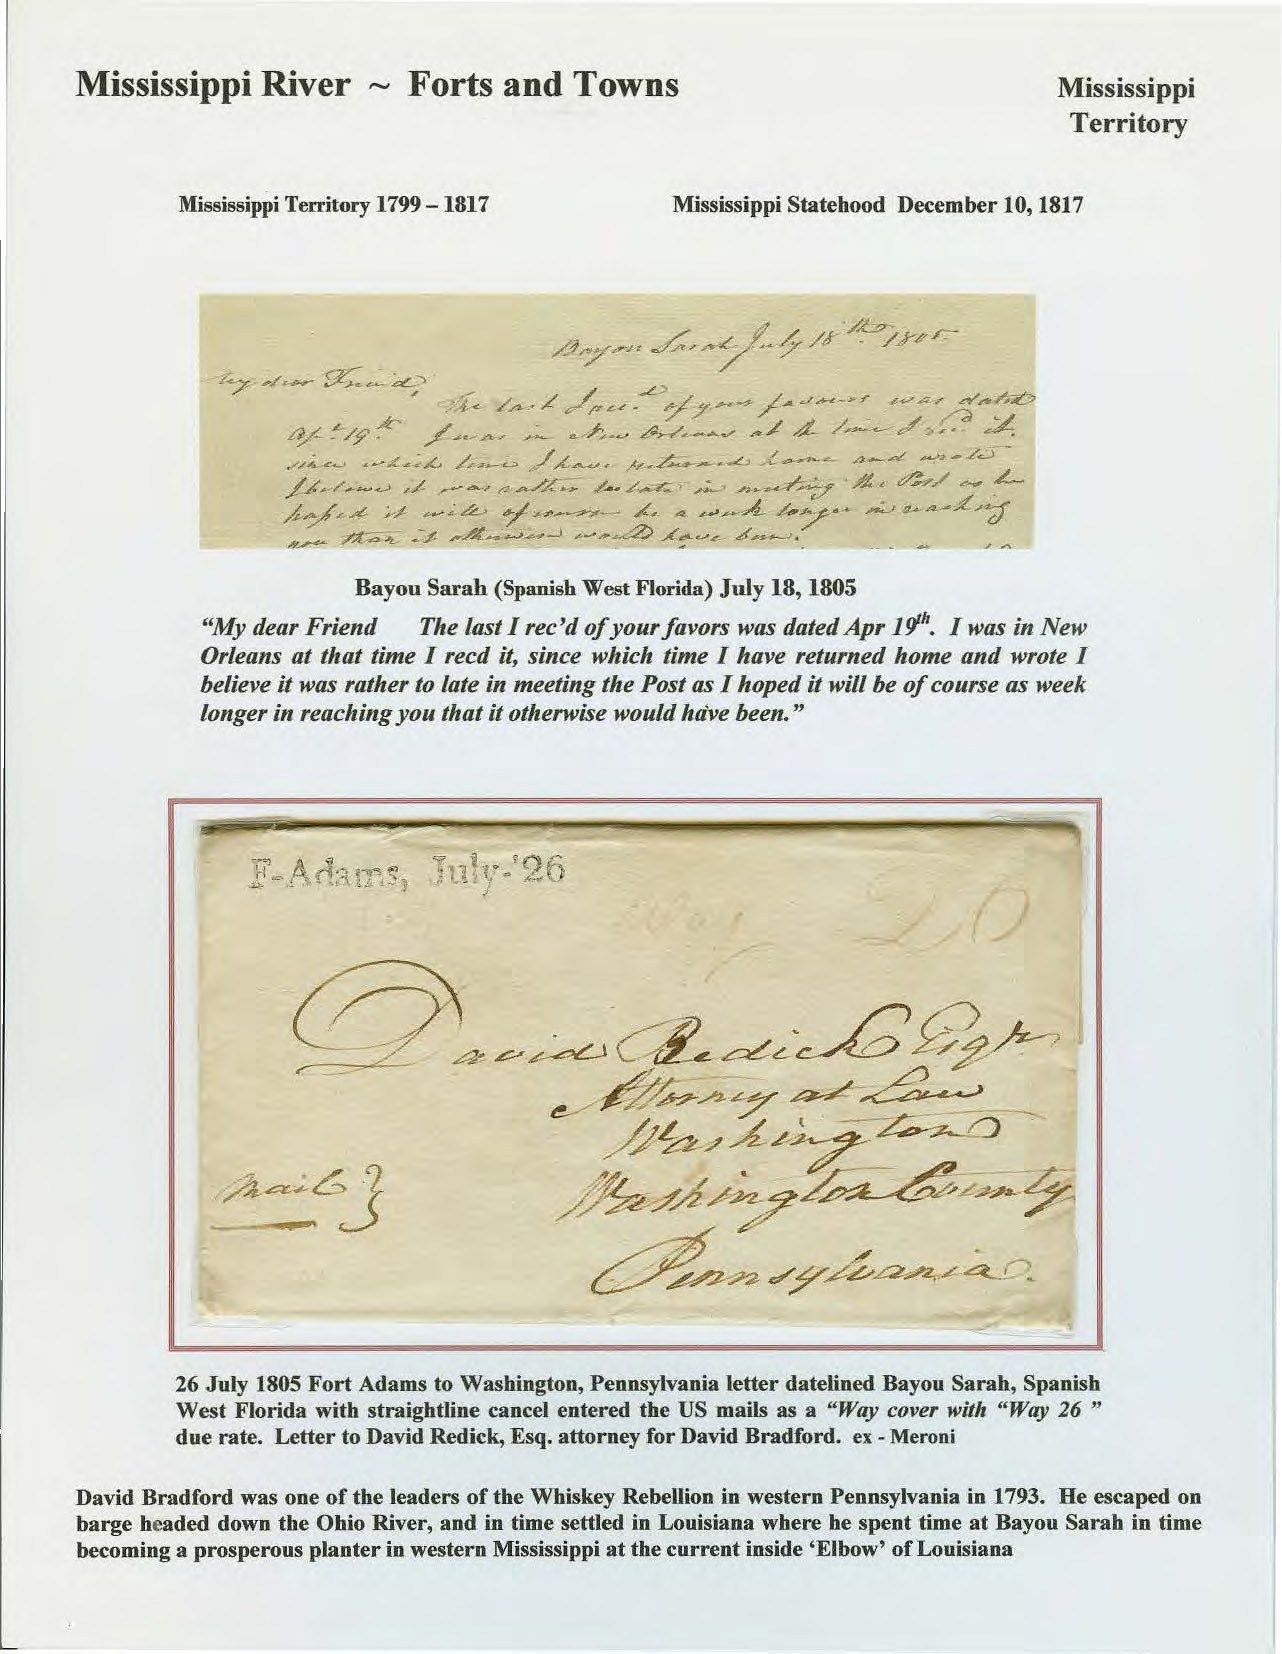 Mississippi River ~ Forts and Towns
Mississippi
Territory
Mississippi Territory 1799 – 1817
Mississippi Statehood December 10, 1817
Bayou Sarah July 18th 1805
My dear Friend,
The last I recd of your favours was dated
Apl 19th I was in New Orleans at the time I recd it.
since which time I have returned home and wrote
I believe it was rather too late in meeting the Post as he
hoped it will of course be a week longer in reaching
you than it otherwise would have been.
Bayou Sarah (Spanish West Florida) July 18, 1805
“My dear Friend The last I rec’d of your favors was dated Apr 19th. I was in New
Orleans at that time I recd it, since which time I have returned home and wrote I
believe it was rather to late in meeting the Post as I hoped it will be of course as week
longer in reaching you that it otherwise would have been.”
F-Adams, July-'26
Way 26
David Redick Esqr
Attorney at Law
Washington
Mail }
Washington County
Pennsylvania.
26 July 1805 Fort Adams to Washington, Pennsylvania letter datelined Bayou Sarah, Spanish
West Florida with straightline cancel entered the US mails as a “Way cover with “Way 26 ”
due rate. Letter to David Redick, Esq. attorney for David Bradford. ex - Meroni
David Bradford was one of the leaders of the Whiskey Rebellion in western Pennsylvania in 1793. He escaped on
barge headed down the Ohio River, and in time settled in Louisiana where he spent time at Bayou Sarah in time
becoming a prosperous planter in western Mississippi at the current inside ‘Elbow’ of Louisiana